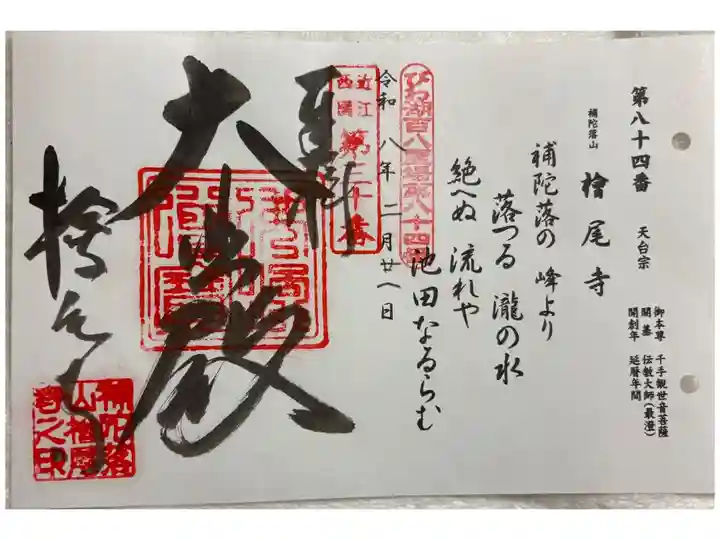 第八十四番
天台宗
補陀落山
檜尾寺
御本尊 千手観世音菩薩
開基 伝教大師(最澄)
開創年 延暦年間
補陀落の 峰より
落つる 瀧の水
絶へぬ 流れや
池田なるらむ
びわ湖百八霊場第八十四番
令和 八年 二月 廿八日
近江
西国
第三十番
奉拝
大悲殿
檜尾寺
補陀落
山檜尾
寺之印